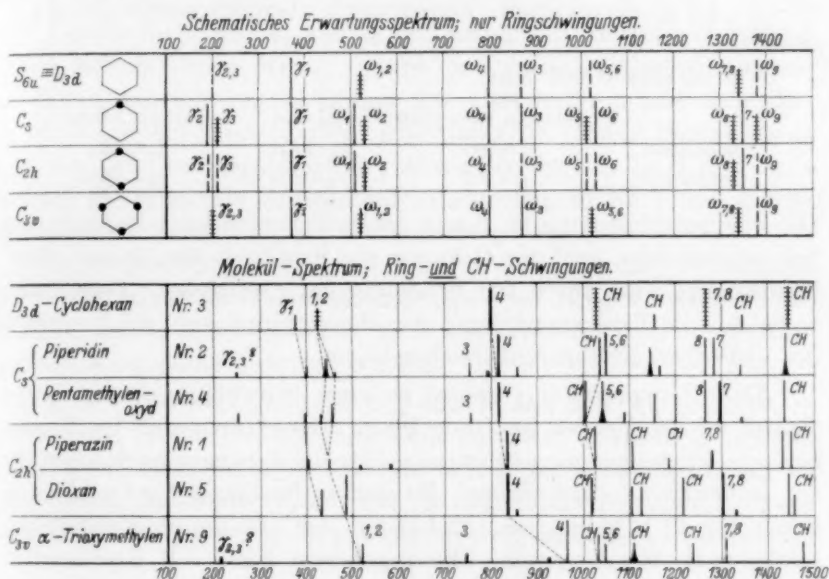 Schematisches Erwartungsspektrum; nur Ringschwingungen.
100 200 300 400 500 600 700 800 900 1000 1100 1200 1300 1400
S6u ≡ D3d γ2,3 γ1 ω1,2 ω4 ω3 ω5,6 ω7,8 ω9
Cs γ2 γ3 γ1 ω1 ω2 ω4 ω3 ω5 ω6 ω8 7 ω9
C2h γ2 γ3 γ1 ω1 ω2 ω4 ω3 ω5 ω6 ω8 7 ω9
C3v γ2,3 γ1 ω1,2 ω4 ω3 ω5,6 ω7,8 ω9
Molekül-Spektrum; Ring-und CH-Schwingungen.
D3d-Cyclohexan Nr. 3 γ1 1,2 4 CH CH 7,8 CH CH
Cs Piperidin Nr. 2 γ2,3? 3 4 CH 5,6 CH 8 7 CH
Pentamethylen-oxyd Nr. 4 3 4 CH 5,6 CH CH 8 7 CH
C2h Piperazin Nr. 1 4 CH CH CH 7,8 CH
Dioxan Nr. 5 4 CH CH CH 7,8 CH
C3v α-Trioxymethylen Nr. 9 γ2,3? 1,2 3 4 CH 5,6 CH CH 7,8 CH
100 200 300 400 500 600 700 800 900 1000 1100 1200 1300 1400 1500